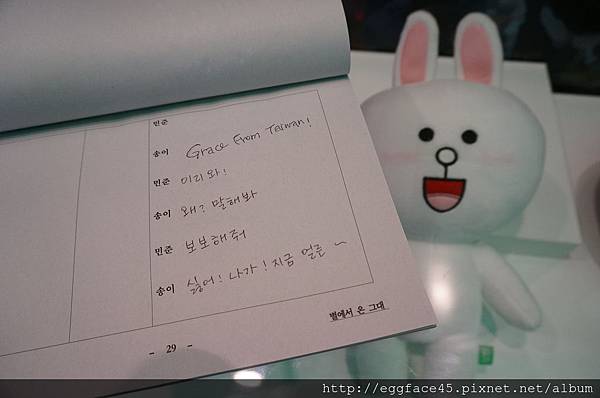 민준
송이 Grace From Taiwan!
민준 이리와!
송이 왜? 말해봐
민준 뽀뽀해줘
송이 싫어! 나가! 지금 얼른 ~
별에서 온 그대
- 29 -
http://eggface45.pixnet.net/album